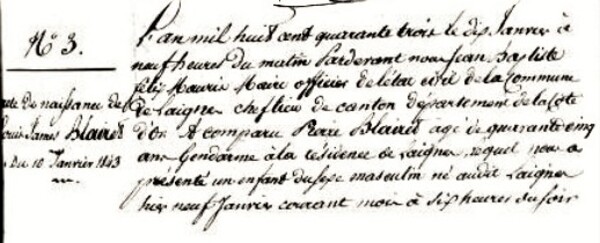 N° 3.
acte de naissance de
Louis James Blairet
Du 10 Janvier 1843
L'an mil huit cent quarante trois le dix Janvier à
neuf heures du matin Pardevant nous Jean Baptiste
félix Mauris Maire officier de l'état civil de la Commune
de Laignes chef lieu de canton département de la Côte
d'Or A comparu Pierre Blairet agé de quarante cinq
ans Gendarme à la résidence de Laignes, lequel nous a
présenté un enfant du sexe masculin né audit Laignes
hier neuf Janvier courant mois à six heures du soir